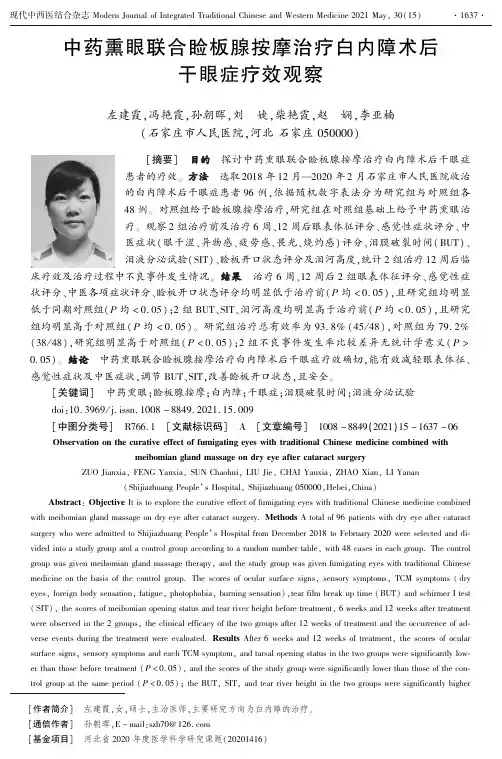 现代中西医结合杂志 Modern Journal of Integrated Traditional Chinese and Western Medicine 2021 May, 30(15) ·1637·
中药熏眼联合睑板腺按摩治疗白内障术后
干眼症疗效观察
左建霞,冯艳霞,孙朝晖,刘 婕,柴艳霞,赵 娴,李亚楠
(石家庄市人民医院,河北 石家庄 050000)
[摘要] 目的 探讨中药熏眼联合睑板腺按摩治疗白内障术后干眼症
患者的疗效。方法 选取2018年12月—2020年2月石家庄市人民医院收治
的白内障术后干眼症患者96例,依据随机数字表法分为研究组与对照组各
48例。对照组给予睑板腺按摩治疗,研究组在对照组基础上给予中药熏眼治
疗。观察2组治疗前及治疗6周、12周后眼表体征评分、感觉性症状评分、中
医症状(眼干涩、异物感、疲劳感、畏光、烧灼感)评分、泪膜破裂时间(BUT)、
泪液分泌试验(SIT)、睑板开口状态评分及泪河高度,统计2组治疗12周后临
床疗效及治疗过程中不良事件发生情况。结果 治疗6周、12周后2组眼表体征评分、感觉性症
状评分、中医各项症状评分、睑板开口状态评分均明显低于治疗前(P均<0.05),且研究组均明显
低于同期对照组(P均<0.05);2组BUT、SIT、泪河高度均明显高于治疗前(P均<0.05),且研究
组均明显高于对照组(P均<0.05)。研究组治疗总有效率为93.8%(45/48),对照组为79.2%
(38/48),研究组明显高于对照组(P<0.05);2组不良事件发生率比较差异无统计学意义(P>
0.05)。结论 中药熏眼联合睑板腺按摩治疗白内障术后干眼症疗效确切,能有效减轻眼表体征、
感觉性症状及中医症状,调节BUT、SIT,改善睑板开口状态,且安全。
[关键词] 中药熏眼;睑板腺按摩;白内障;干眼症;泪膜破裂时间;泪液分泌试验
doi:10.3969/j.issn.1008-8849.2021.15.009
[中图分类号] R766.1 [文献标识码] A [文章编号] 1008-8849(2021)15-1637-06
Observation on the curative effect of fumigating eyes with traditional Chinese medicine combined with
meibomian gland massage on dry eye after cataract surgery
ZUO Jianxia, FENG Yanxia, SUN Chaohui, LIU Jie, CHAI Yanxia, ZHAO Xian, LI Yanan
(Shijiazhuang People's Hospital, Shijiazhuang 050000, Hebei, China)
Abstract: Objective It is to explore the curative effect of fumigating eyes with traditional Chinese medicine combined
with meibomian gland massage on dry eye after cataract surgery. Methods A total of 96 patients with dry eye after cataract
surgery who were admitted to Shijiazhuang People's Hospital from December 2018 to February 2020 were selected and di-
vided into a study group and a control group according to a random number table, with 48 cases in each group. The control
group was given meibomian gland massage therapy, and the study group was given fumigating eyes with traditional Chinese
medicine on the basis of the control group. The scores of ocular surface signs, sensory symptoms, TCM symptoms (dry
eyes, foreign body sensation, fatigue, photophobia, burning sensation), tear film break up time (BUT) and schirmer I test
(SIT), the scores of meibomian opening status and tear river height before treatment, 6 weeks and 12 weeks after treatment
were observed in the 2 groups, the clinical efficacy of the two groups after 12 weeks of treatment and the occurrence of ad-
verse events during the treatment were evaluated. Results After 6 weeks and 12 weeks of treatment, the scores of ocular
surface signs, sensory symptoms and each TCM symptom, and tarsal opening status in the two groups were significantly low-
er than those before treatment (P<0.05), and the scores of the study group were significantly lower than those of the con-
trol group at the same period (P<0.05); the BUT, SIT, and tear river height in the two groups were significantly higher
[作者简介] 左建霞,女,硕士,主治医师,主要研究方向为白内障的治疗。
[通信作者] 孙朝晖,E-mail:szh70@126.com
[基金项目] 河北省2020年度医学科学研究课题(20201416)